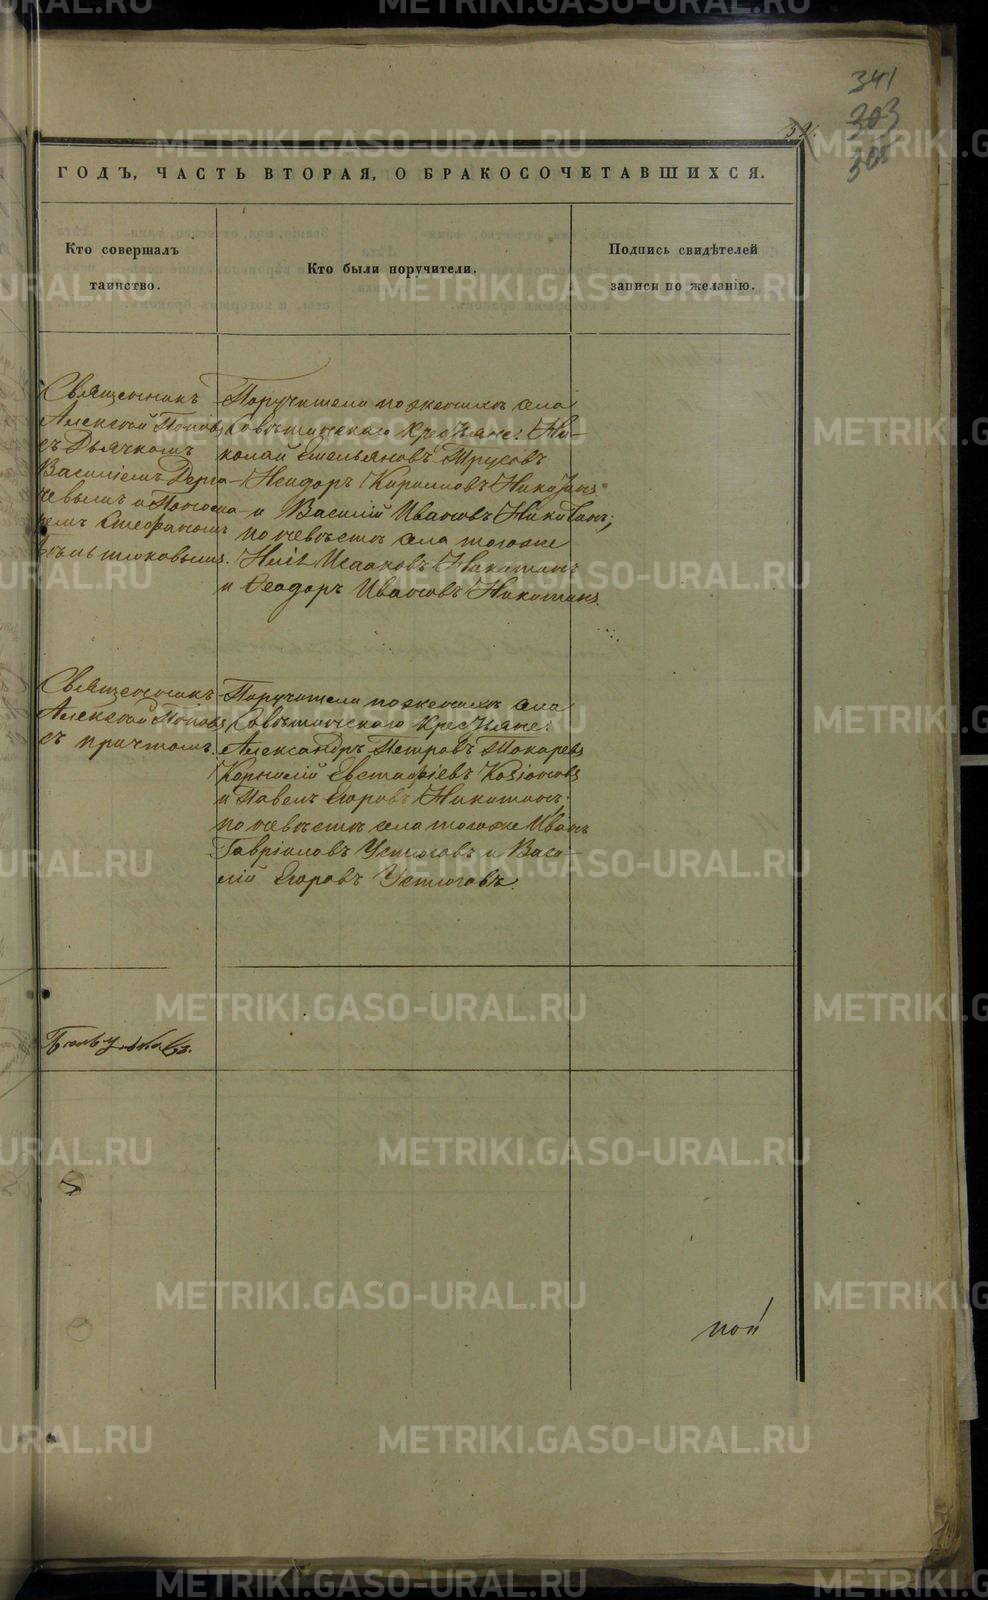 341
303
ГОДЪ, ЧАСТЬ ВТОРАЯ, О БРАКОСОЧЕТАВШИХСЯ.
Кто совершалъ
таинство.
Кто были поручители.
Подпись свидѣтелей
записи по желанію.
Священникъ
Алексѣй Поповъ
съ Дьячкомъ
Василіемъ Дерга-
чевымъ и Понома-
ремъ Стефаномъ
Поручители по женихѣ села
крестьяне: Ни-
колай Емельяновъ Трусовъ
Неадоръ Кириловъ Никитинъ
и Василій Ивановъ Никитинъ;
по невѣстѣ села тогоже
Нилъ Исааковъ Никитинъ
и Ѳеодоръ Ивановъ Никитинъ.
Священникъ
Алексѣй Поповъ
съ причтомъ.
Поручители по женихѣ села
крестьяне:
Александръ Петровъ Токаревъ
Корнилій Евстафіевъ
и Павелъ Егоровъ Никитинъ;
по невѣстѣ села тогоже Иванъ
Гавріиловъ Устюговъ и Васи-
лій Егоровъ Устюговъ.
METRIKI.GASO-URAL.RU